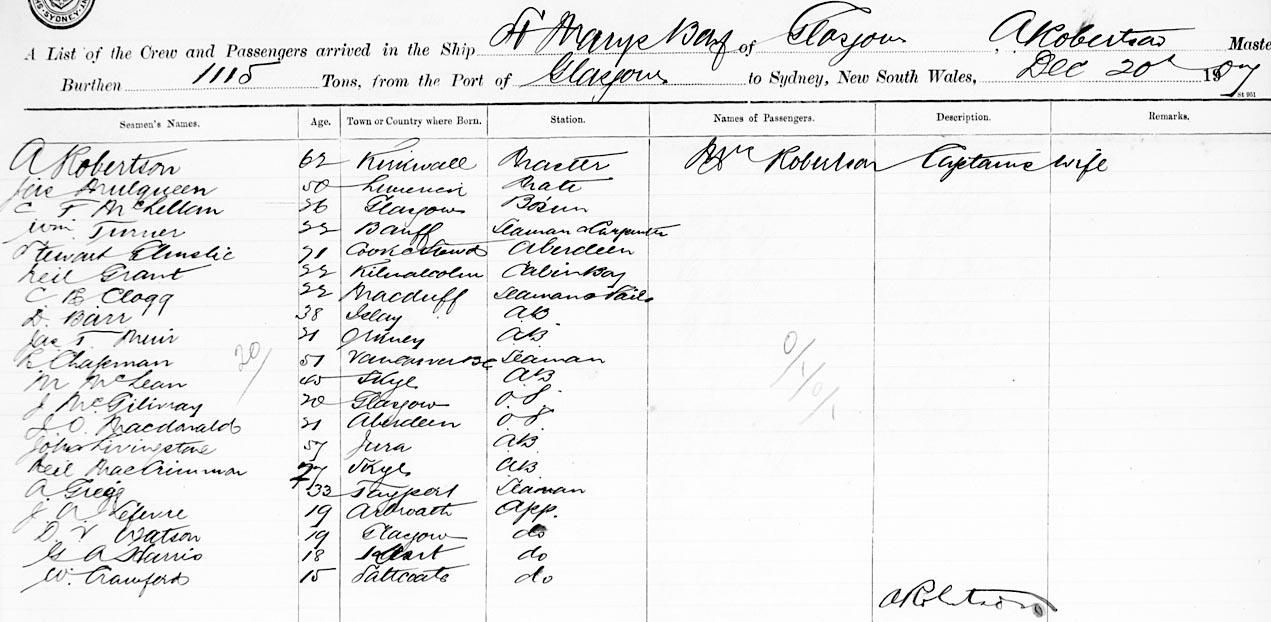 A List of the Crew and Passengers arrived in the Ship St Marys Bay of Glasgow A Robertson Maste
Burthen 1115 Tons, from the Port of Glasgow to Sydney, New South Wales, Dec 20th 1907
St 951
Seamen's Names. Age. Town or Country where Born. Station. Names of Passengers. Description. Remarks.
A Robertson 62 Kirkwall Master Mrs Robertson Captains wife
Jas Mulqueen 50 Limerick Mate
C F McLellan 26 Glasgow Bosun
Wm Turner 22 Banff Seaman & Carpenter
Stewart Elmslie 21 Cook & Steward Aberdeen
Neil Grant 22 Kilmalcolm Cabin Boy
C B Clogg 22 Macduff Seaman & Sails
D. Barr 38 Islay AB
Jas T. Muir 21 Orkney AB
R Chapman 51 Vancouver BC Seaman
M McLean 45 Skye AB
J McGilivray 20 Glasgow O.S.
J. O. Macdonald 21 Aberdeen O.S.
John Livingstone 57 Jura AB
Neil MacCrimmon 27 Skye AB
A Gregg 33 Tayport Seaman
J A Lefevre 19 Arbroath App.
D V Watson 19 Glasgow do
G A Harris 18 do
W. Crawford 15 Saltcoats do
A Robertson